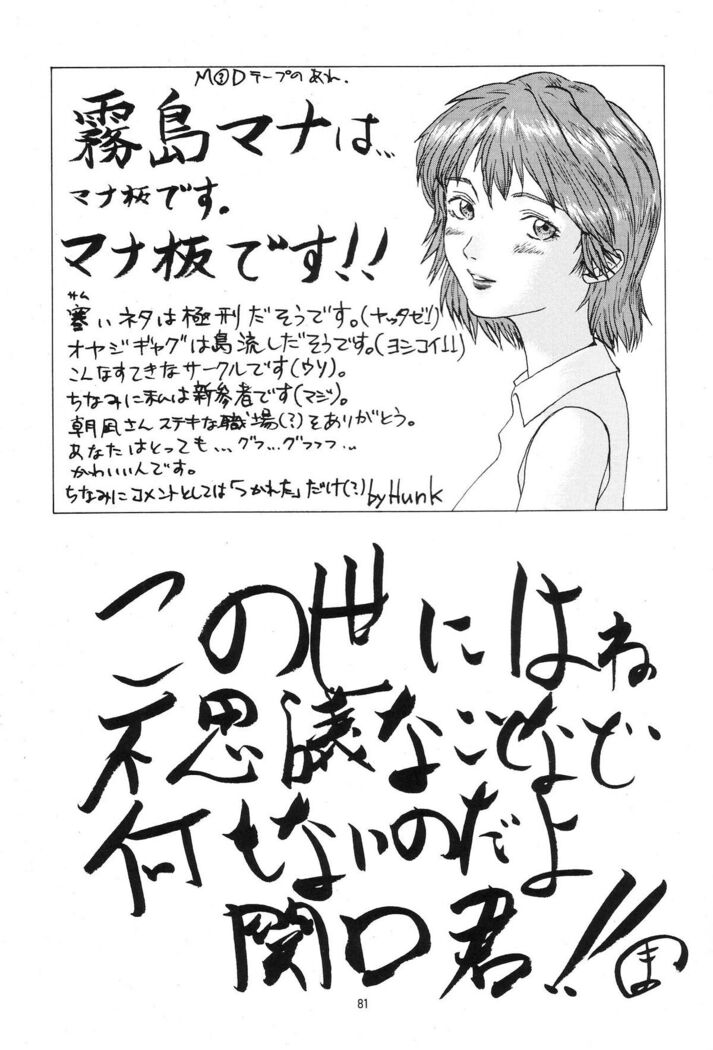 M②Dテープのあれ.
霧島マナは...
マナ板です。
マナ板です!!
サム
寒いネタは極刑だそうです。(ヤッタゼ!)
オヤジギャグは島流しだそうです。(ヨシコイ!!)
こんなすてきなサークルです(ウソ)。
ちなみに私は新参者です(マジ)。
朝凪さんステキな職場(?)をありがとう。
あなたはとっても...グフ...グフフフ...
かわいい人です。
ちなみにコメントとしては「つかれた」だけ(?) by Hunk
この世にはね
不思議なことなど
何もないのだよ
関口君!!
ま
81